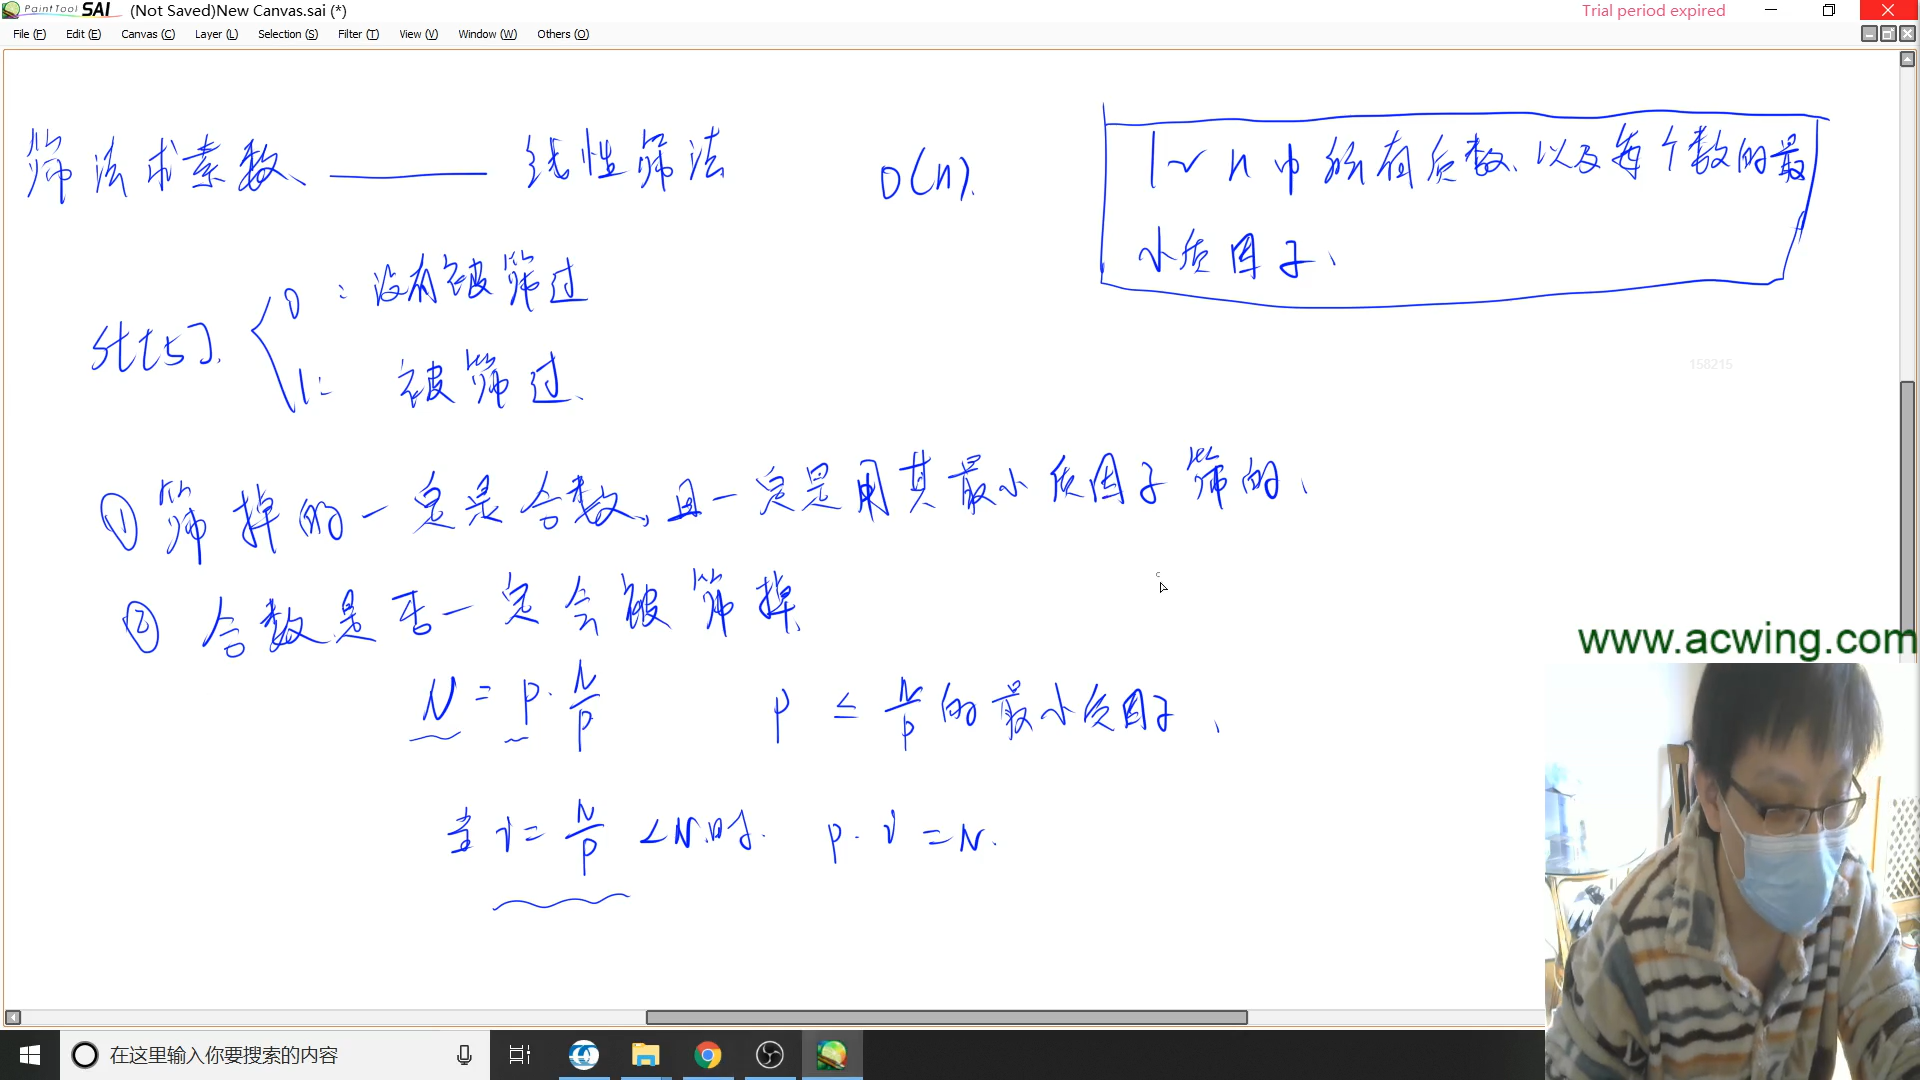 PaintTool SAI (Not Saved)New Canvas.sai (*)
Trial period expired
File (F) Edit (E) Canvas (C) Layer (L) Selection (S) Filter (T) View (V) Window (W) Others (O)
筛法求素数、 —— 线性筛法 O(n).
1~n中所有质数、以及每个数的最
小质因子、
st[5]. 0：没有被筛过
1: 被筛过.
158215
① 筛掉的一定是合数，且一定是用其最小质因子筛的、
② 合数是否一定会被筛掉
www.acwing.com
N = p · N/p p ≤ N/p 的最小质因子、
当 i = N/p < N 时. p · i = N.
在这里输入你要搜索的内容